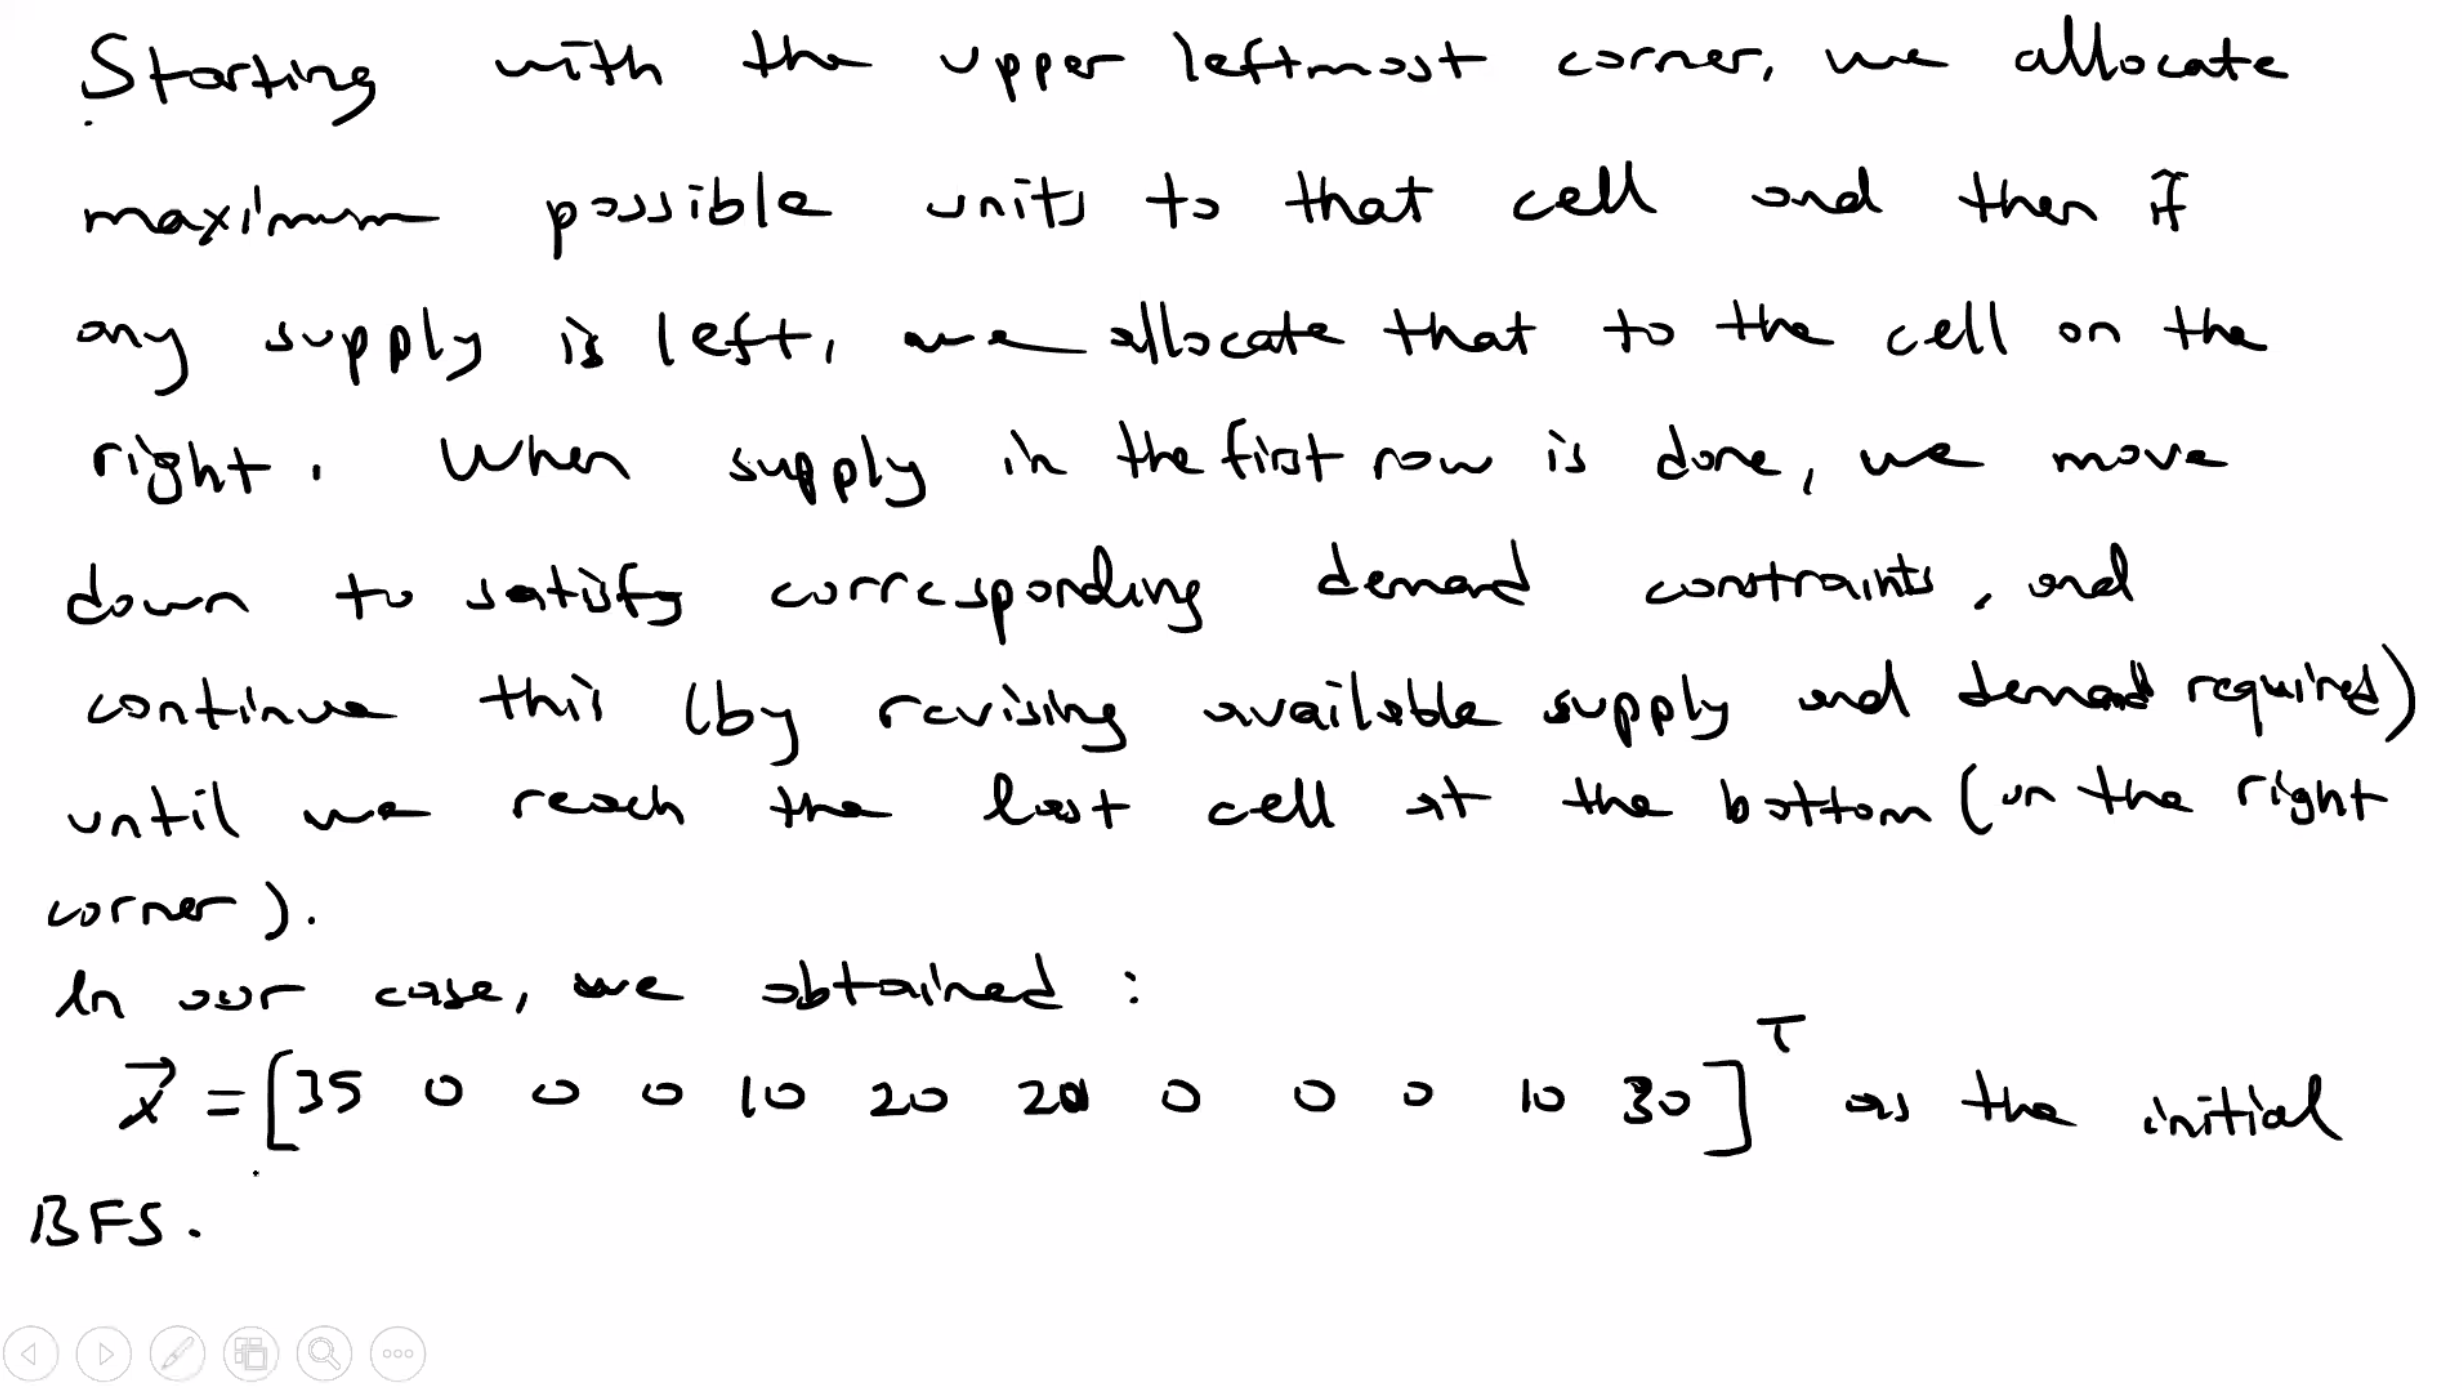 Starting with the upper leftmost corner, we allocate
maximum possible units to that cell and then if
any supply is left, we allocate that to the cell on the
right. When supply in the first row is done, we move
down to satisfy corresponding demand constraints, and
continue this (by revising available supply and demand required)
until we reach the last cell at the bottom (on the right
corner).
In our case, we obtained :
x⃗ = [35 0 0 0 10 20 20 0 0 0 10 30]ᵀ as the initial
BFS.